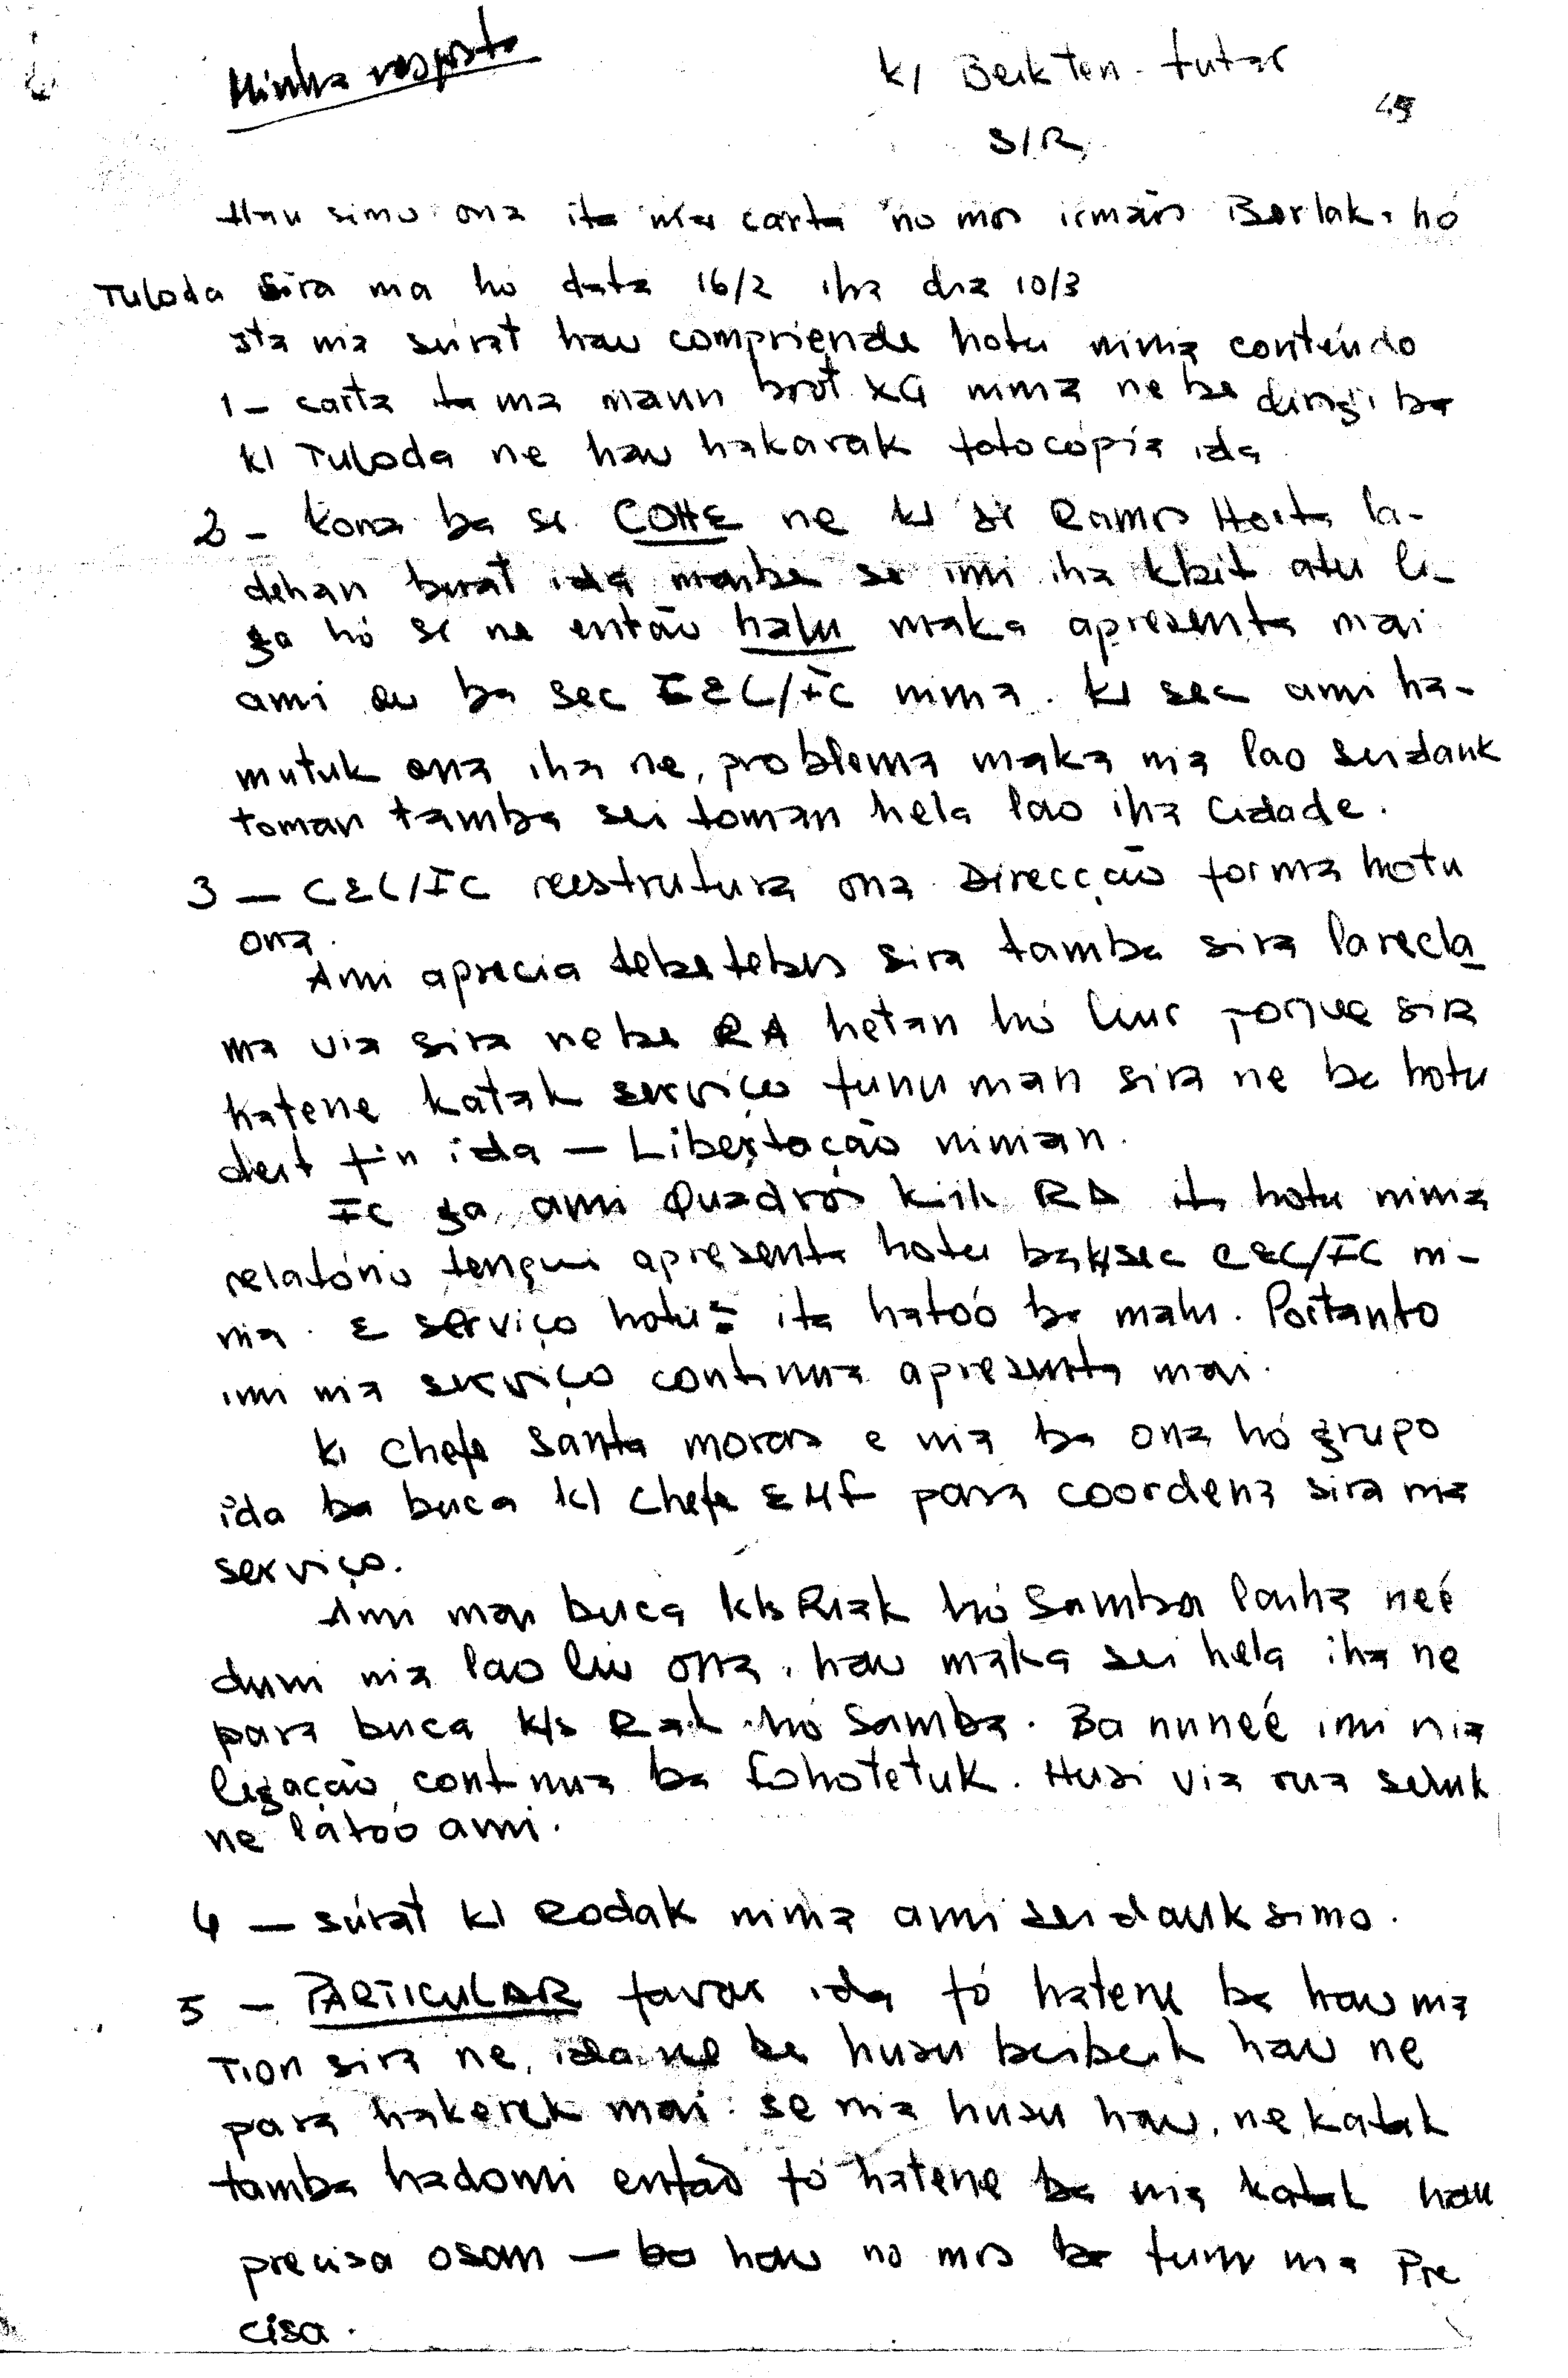 Minha resposta
K/ Beik ten - tutar
S/R,
Hau simu ona ita nia carta no mos irmãos Berlak, hó
Tuloda sira nia ho data 16/2 iha dia 10/3
Ita nia surat hau compriende hotu ninia conteúdo
1 - carta ita nia maun boot XG ninia ne be dirigi ba
K/ Tuloda ne hau hakarak fotocópia ida
2 - Kona ba si COHE ne K/ si Ramos Horta la-
dehan burat ida maibe se imi iha kbit atu li-
ga hó si ne então halu maka apresenta mai
ami ou ba sec CEL/FC ninia. K/ sec ami ha-
mutuk ona iha ne, problema maka nia lao seidauk
toman tamba sei toman hela lao iha Cidade.
3 - CEL/FC reestrutura ona Direcção forma hotu
ona.
Ami aprecia tebetebes sira tamba sira la recla
ma via sira nebe RA hetan hó liur porque sira
hatene katak serviço funu man sira ne be hotu
deit fin ida - Libertação niman.
FC ga ami Quadros kiik RA ita hotu ninia
relatório tenqui apresenta hotu ba K/sec CEL/FC ni-
nia. E serviço hotu ita hatoó ba malu. Portanto
imi nia serviço continua apresenta mai.
K/ Chefe Santa moras e nia ba ona hó grupo
ida ba buca K/ Chefe EMF para coordena sira nia
serviço.
Ami mai buca K/s Riak hó Samba laiha neé
duni nia lao liu ona, hau maka sei hela iha ne
para buca K/s Riak hó Samba. Ba nuneé imi nia
ligação continua ba Fohotetuk. Husi via rua seluk
ne látoó ami.
4 - surat K/ Rodak ninia ami seidauk simo.
5 - PARTICULAR favor ida fó hatene ba hau nia
Tion sira ne, ida ne be husu beibeik hau ne
para hakerek mai. se nia husu hau, ne katak
tamba hadomi então fó hatene ba nia katak hau
precisa osan - ba hau no mos ba funu nia Pre
cisa.